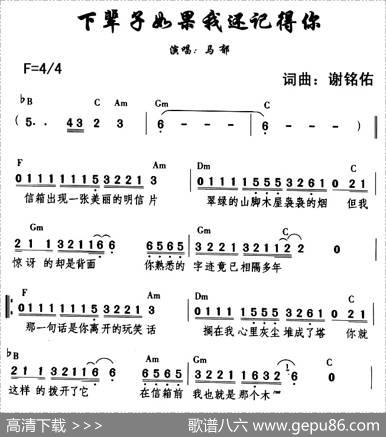 下辈子如果我还记得你
演唱：马郁
F=4/4
词曲：谢铭佑
♭B C Am Gm C
( 5.. 43 2 3 6 - - - 6 - - ) 0
F Am Dm C
0111 1115 5553 3221 3 0111 1555 5532 6 1 0 21
信箱出现一张美丽的明信片 翠绿的山脚木屋袅袅的烟 但我
Gm Gm C
21 1 32116 6 6565 3221 32112 2 0
惊讶的却是背面 你熟悉的 字迹竟已相隔多年
F Am Dm C
0111 1115 5553 3221 3 0111 1555 5532 6 1 0 21
那一句话是你离开的玩笑话 搁在我心里灰尘堆成了塔 你就
♭B Am Gm C
这样的拨开了它 在信箱前 我也就是那个木
高清下载 >>> 歌谱八六 www.gepu86.com